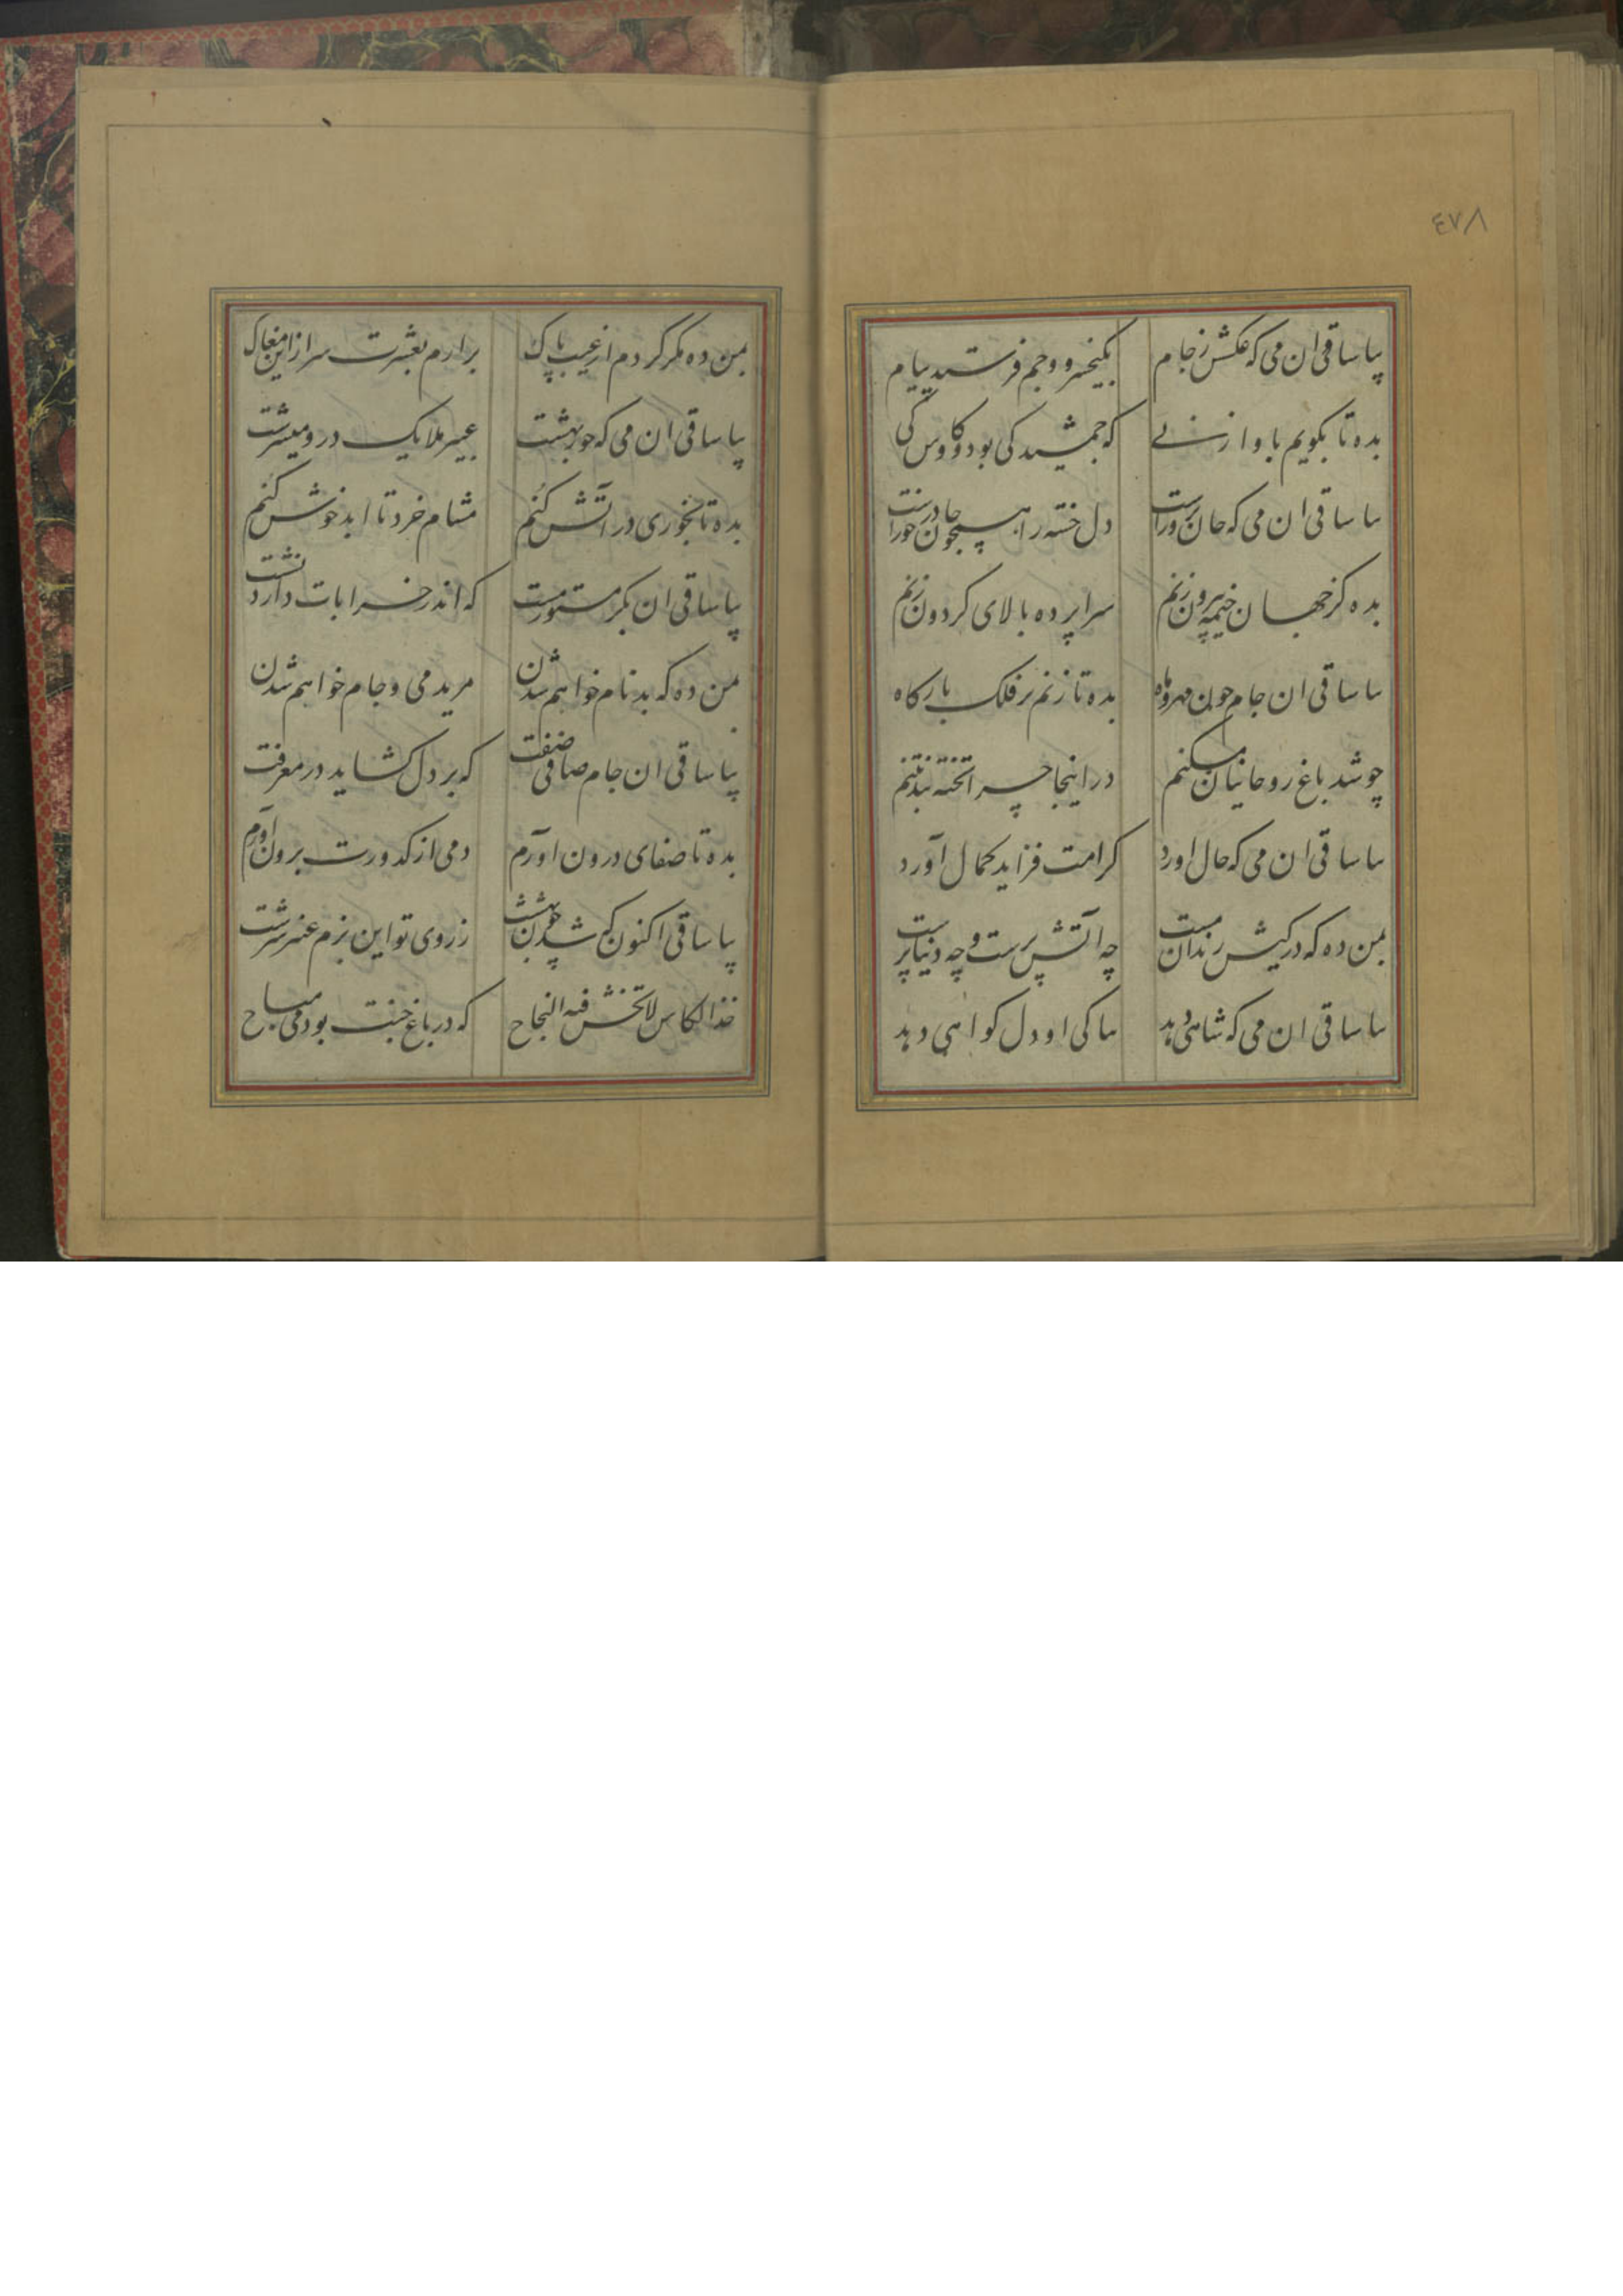 ٤٧٨
بیا ساقی ان می که عکسش ز جام بکیخسرو و جم فرستد پیام
بده تا بکویم باواز نی که جمشید کی بود و کاوس کی
سا ساقی ان می که جان پرورست دل خسته را همچو جان درخورست
بده کز جهان خیمه بیرون زنم سراپرده بالای کردون زنم
سا ساقی ان جام چون مهر و ماه بده تا زنم بر فلک بارکاه
چو شد باغ روحانیان مسکنم در اینجا چرا تخته بند تنم
سا ساقی ان می که حال اورد کرامت فزاید کمال آورد
بمن ده که در کیش رندان مست چه آتش پرست و چه دنیاپرست
سا ساقی ان می که شاهی دهد بپاکی او دل کواهی دهد
بمن ده مکر کردم از عیب پاک برارم بعشرت سر از این مغاک
بیا ساقی ان می که حور بهشت عبیر ملایک درو میسرشت
بده تا بخوری در آتش کنم مشام خرد تا ابد خوش کنم
بیا ساقی ان بکر مستور مست که اندر خرابات دارد نشست
بمن ده که بدنام خواهم شدن مرید می و جام خواهم شدن
بیا ساقی ان جام صافی صفت که بر دل کشاید در معرفت
بده تا صفای درون آورم دمی از کدورت برون آورم
بیا ساقی اکنون که شد چون بهشت ز روی تو این بزم عنبر سرشت
خذ الکاس لا تخش فیه النجاح که در باغ جنت بود می مباح